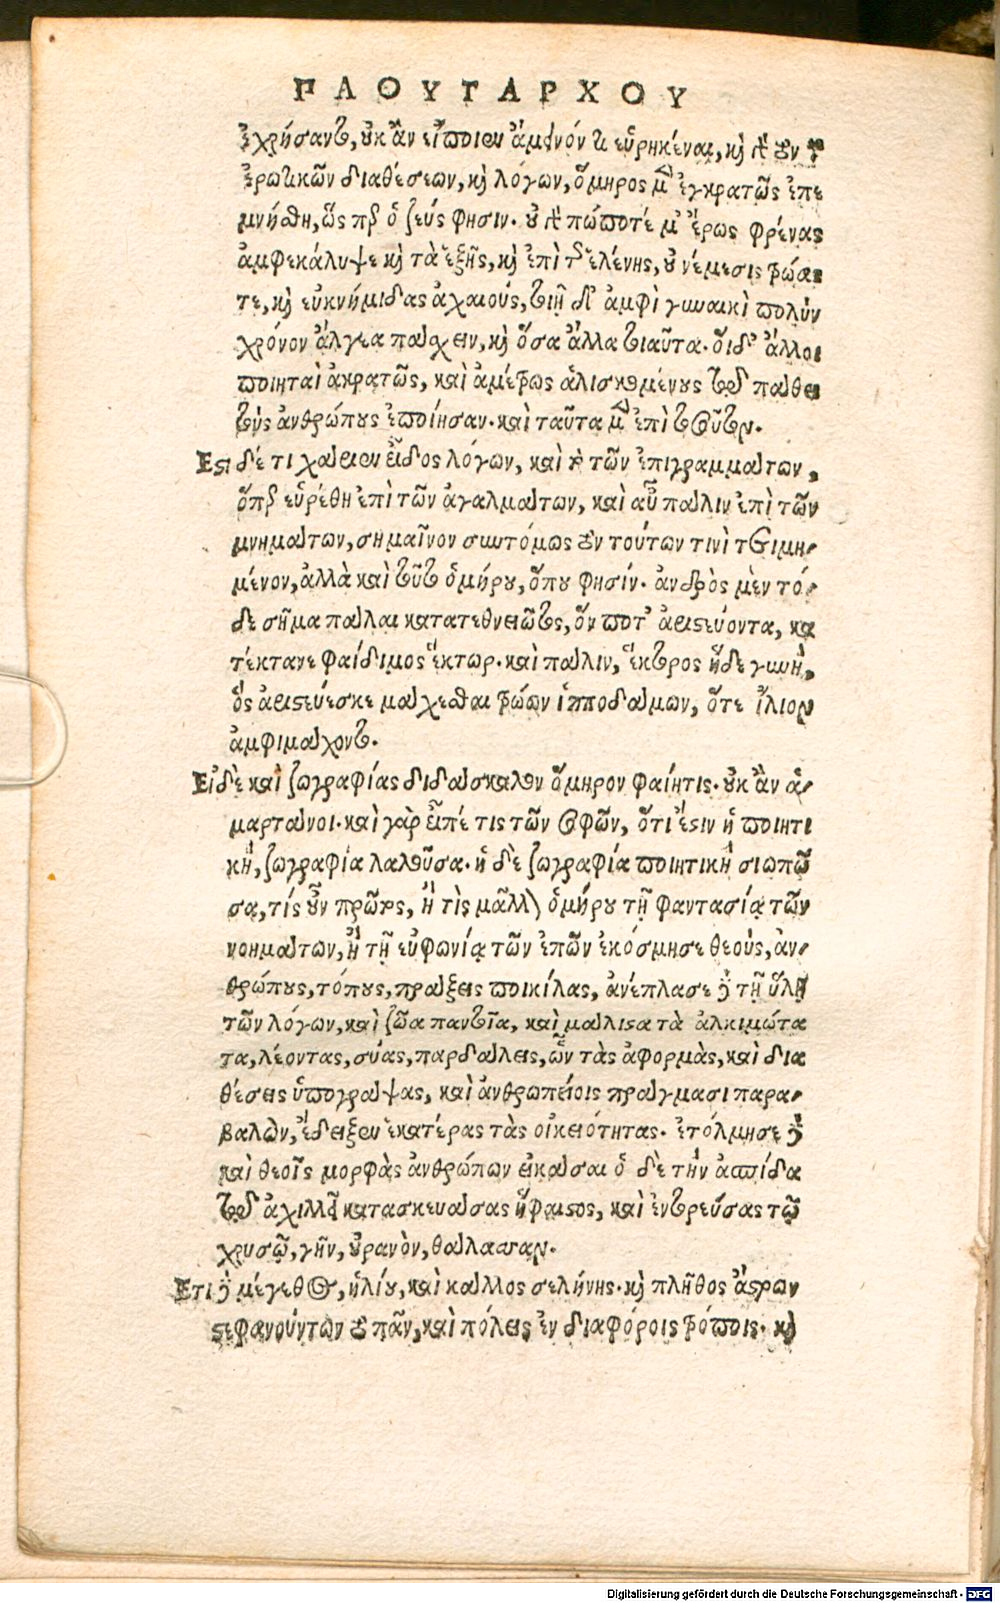 ΠΛΟΥΤΑΡΧΟΥ
ἐχρήσαντο, οὐκ ἂν εἴποιεν ἄμεινόν τι εὑρηκέναι, καὶ
ἐρωτικῶν διαθέσεων, καὶ λόγων, ὅμηρος μὲν ἐγκρατῶς ἐπε
μνήσθη, ὥσπερ ὁ ζεύς φησιν. οὐ γὰρ πώποτέ μ' ἔρως φρένας
ἀμφεκάλυψε καὶ τὰ ἑξῆς, καὶ ἐπὶ τῆς ἑλένης, οὐ νέμεσις τρώας
τε, καὶ εὐκνήμιδας ἀχαιούς, τοιῇ δ' ἀμφὶ γυναικὶ πολὺν
χρόνον ἄλγεα πάσχειν, καὶ ὅσα ἄλλα τοιαῦτα. οἱ δ' ἄλλοι
ποιηταὶ ἀκρατῶς, καὶ ἀμέτρως ἁλισκομένους τοῦ πάθει
τοὺς ἀνθρώπους ἐποίησαν. καὶ ταῦτα μὲν ἐπὶ τοσοῦτον.
Εστι δέ τι χαρίεν εἶδος λόγων, καὶ τὸ τῶν ἐπιγραμμάτων,
ὅπερ εὑρέθη ἐπὶ τῶν ἀγαλμάτων, καὶ αὖ πάλιν ἐπὶ τῶν
μνημάτων, σημαῖνον συντόμως τὸν τούτων τινὶ τετιμη-
μένον, ἀλλὰ καὶ τοῦτο ὁμήρου, ὅπου φησίν. ἀνδρὸς μὲν τό-
δε σῆμα πάλαι κατατεθνειῶτος, ὅν ποτ' ἀριστεύοντα, κα
τέκτανε φαίδιμος ἕκτωρ. καὶ πάλιν, ἕκτορος ἥδε γυνή,
ὃς ἀριστεύεσκε μάχεσθαι τρώων ἱπποδάμων, ὅτε ἴλιον
ἀμφιμάχοντο.
Εἰ δὲ καὶ ζωγραφίας διδάσκαλον ὅμηρον φαίητις. οὐκ ἂν ἁ-
μαρτάνοι. καὶ γὰρ εἶπέ τις τῶν σοφῶν, ὅτι ἐστὶν ἡ ποιητι
κή, ζωγραφία λαλοῦσα. ἡ δὲ ζωγραφία ποιητικὴ σιωπῶ
σα, τίς οὖν πρῶτος, ἢ τὶς μᾶλλον ὁμήρου τῇ φαντασίᾳ τῶν
νοημάτων, ἢ τῇ εὐφωνίᾳ τῶν ἐπῶν ἐκόσμησε θεούς, ἀν-
θρώπους, τόπους, πράξεις ποικίλας, ἀνέπλασε δὲ τῇ ὕλῃ
τῶν λόγων, καὶ ζῶα παντοῖα, καὶ μάλιστα τὰ ἀλκιμώτα
τα, λέοντας, σύας, παρδάλεις, ὧν τὰς ἀφορμὰς, καὶ δια
θέσεις ὑπογράψας, καὶ ἀνθρωπείοις πράγμασι παρα-
βαλὼν, ἔδειξεν ἑκατέρας τὰς οἰκειότητας. ἐτόλμησε δὲ
καὶ θεοῖς μορφὰς ἀνθρώπων εἰκάσαι ὁ δὲ τὴν ἀσπίδα
τοῦ ἀχιλλέως κατασκευάσας ἥφαιστος, καὶ ἐντορεύσας τῷ
χρυσῷ, γῆν, οὐρανὸν, θάλασσαν.
Ετι δὲ μέγεθος, ἡλίου, καὶ κάλλος σελήνης. καὶ πλῆθος ἄστρων
στεφανούντων τὸ πᾶν, καὶ πόλεις ἐν διαφόροις τρόποις. καὶ
Digitalisierung gefördert durch die Deutsche Forschungsgemeinschaft - DFG